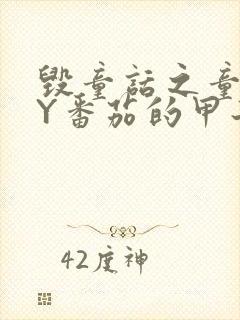 毁童话之童
Y番茄的甲
42度神